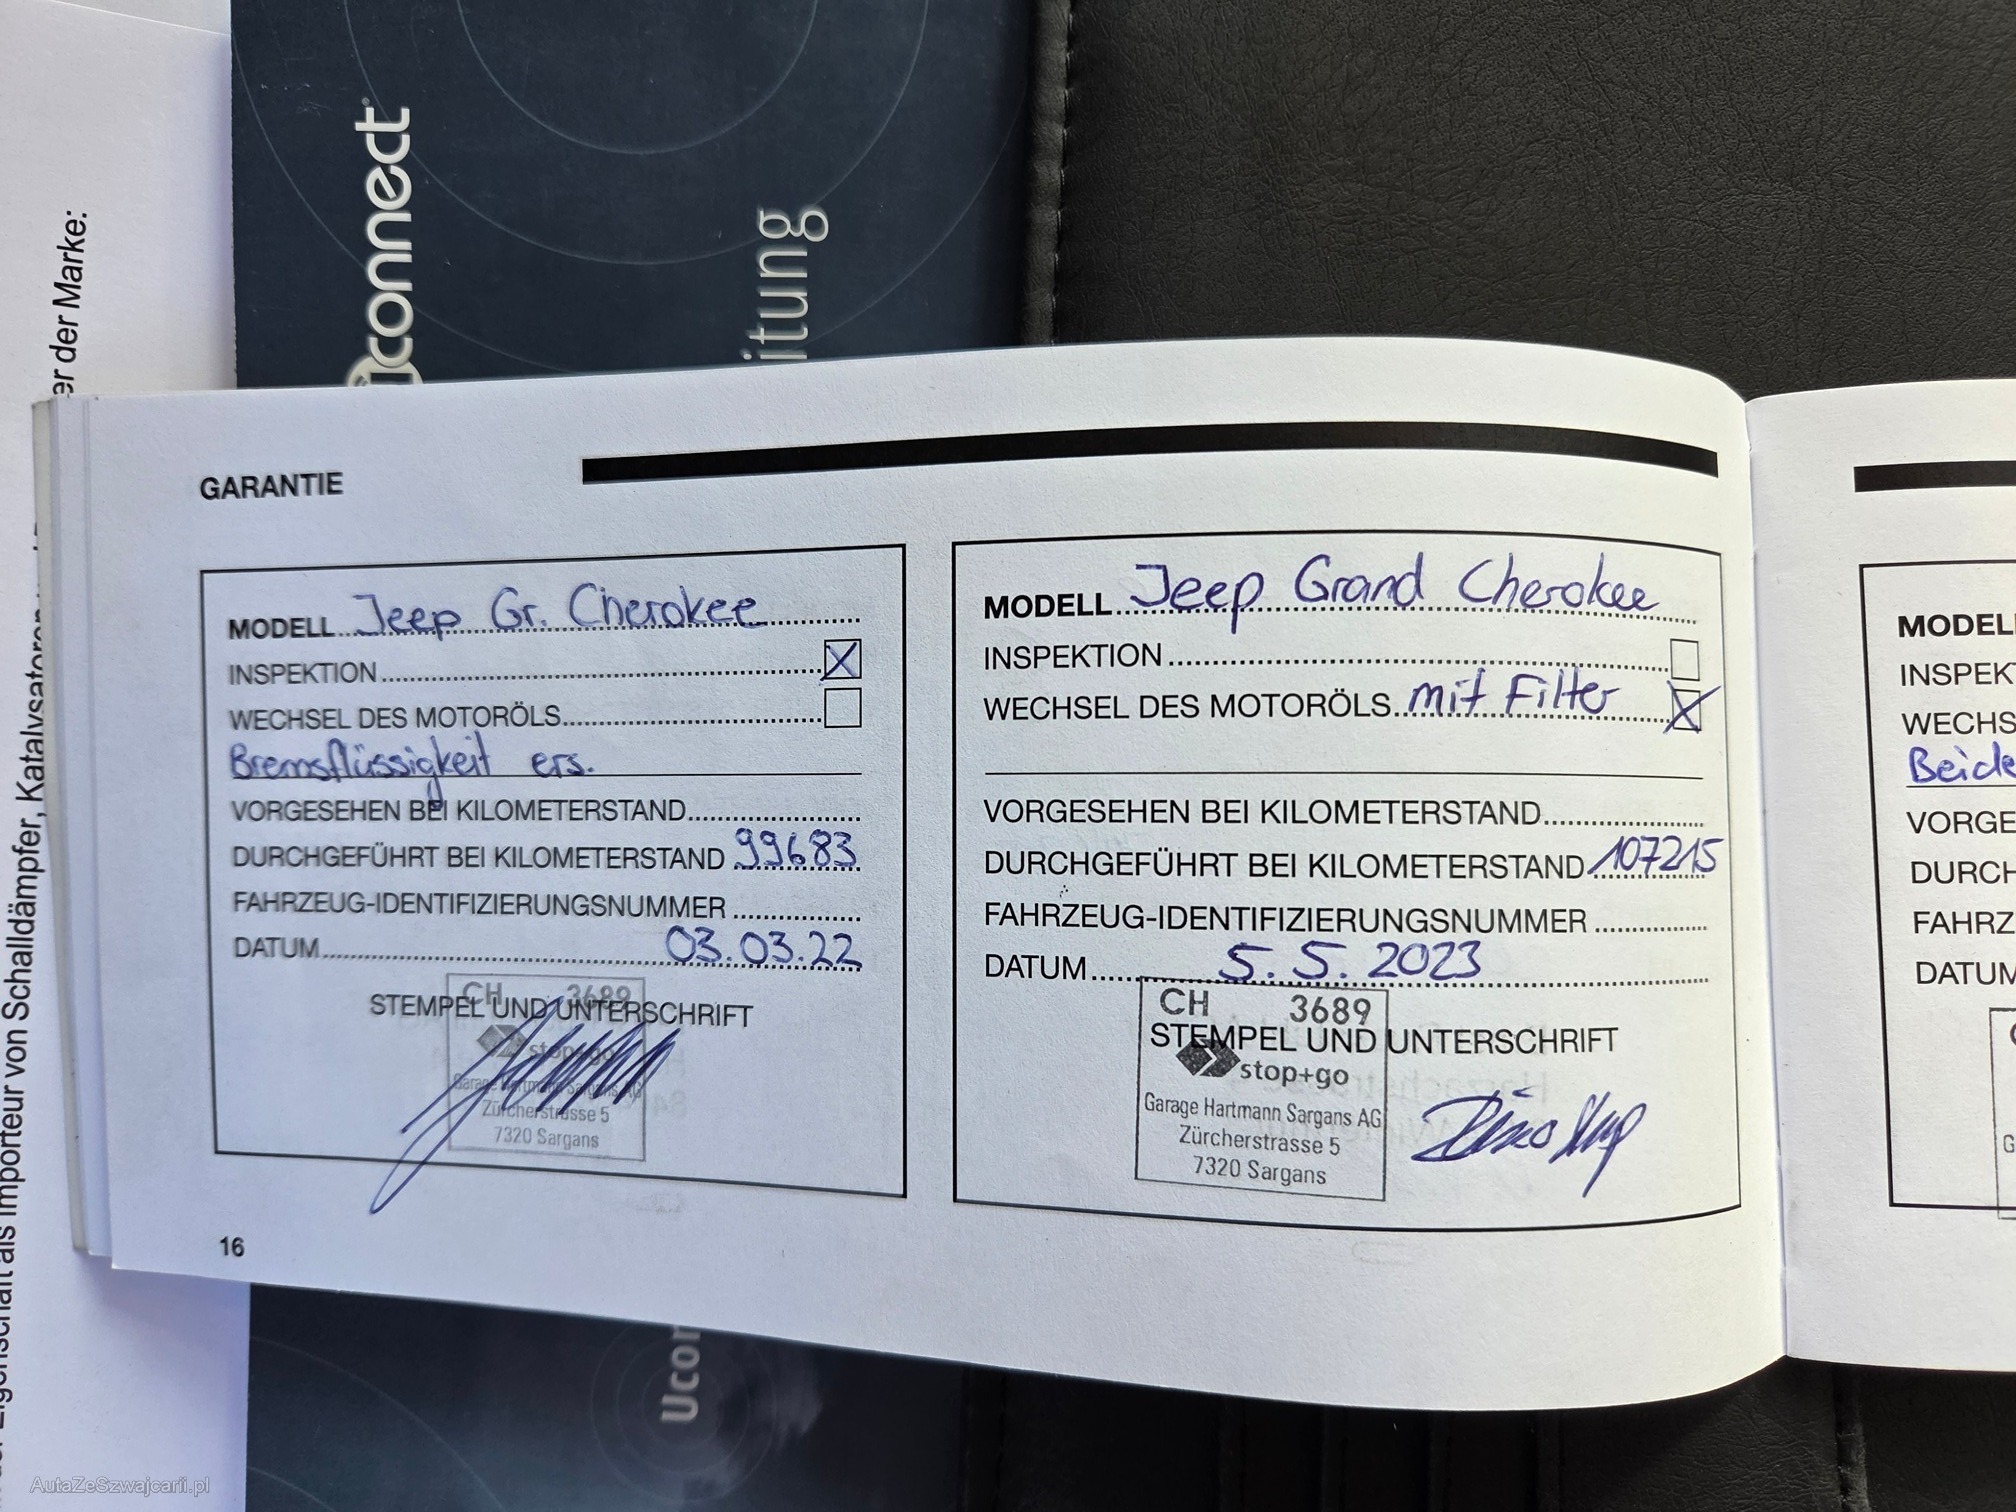 uconnect
itung
er der Marke:
Eigenschaft als Importeur von Schalldämpfer, Katalysatoren
GARANTIE
MODELL Jeep Gr. Cherokee
INSPEKTION X
WECHSEL DES MOTORÖLS
Bremsflüssigkeit ers.
VORGESEHEN BEI KILOMETERSTAND
DURCHGEFÜHRT BEI KILOMETERSTAND 99683
FAHRZEUG-IDENTIFIZIERUNGSNUMMER
DATUM 03.03.22
STEMPEL UND UNTERSCHRIFT
CH 3689
stop+go
Garage Hartmann Sargans AG
Zürcherstrasse 5
7320 Sargans
16
MODELL Jeep Grand Cherokee
INSPEKTION
WECHSEL DES MOTORÖLS mit Filter X
VORGESEHEN BEI KILOMETERSTAND
DURCHGEFÜHRT BEI KILOMETERSTAND 107215
FAHRZEUG-IDENTIFIZIERUNGSNUMMER
DATUM 5.5.2023
CH 3689
STEMPEL UND UNTERSCHRIFT
stop+go
Garage Hartmann Sargans AG
Zürcherstrasse 5
7320 Sargans
MODEL
INSPEK
WECHS
Beide
VORGE
DURCH
FAHRZ
DATUM
Ucon
AutaZeSzwajcarii.pl